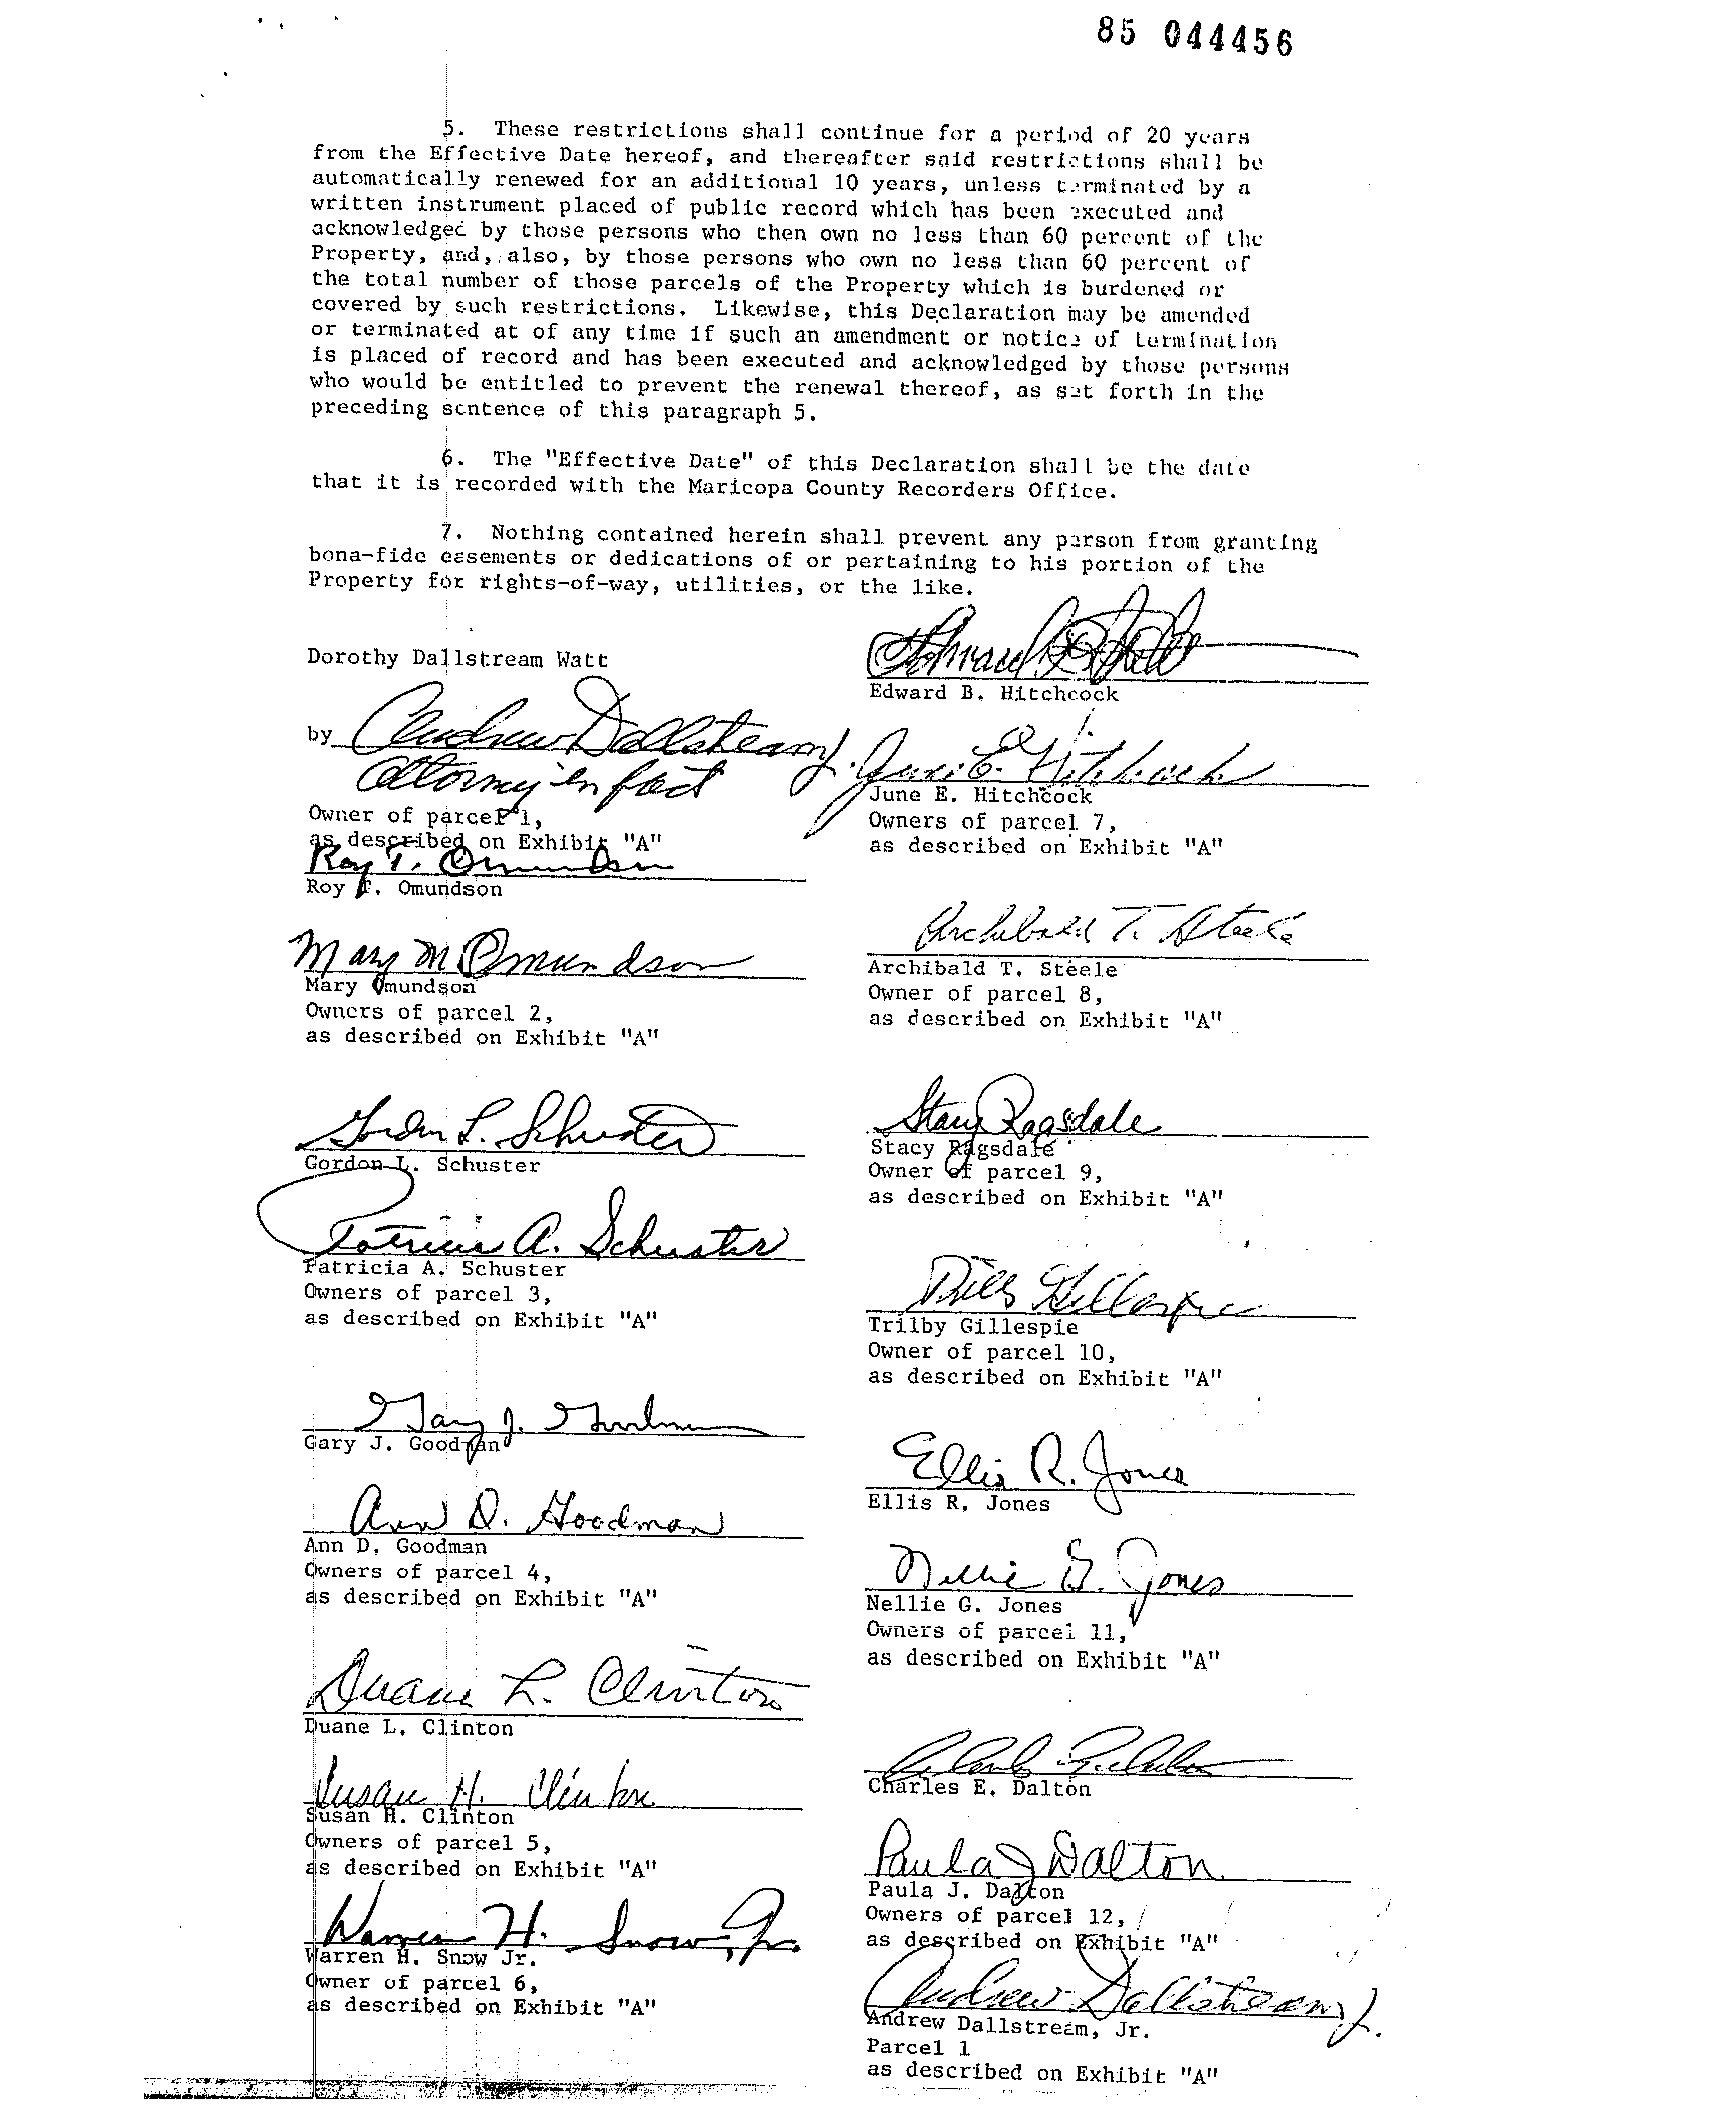 85 044456
5. These restrictions shall continue for a period of 20 years
from the Effective Date hereof, and thereafter said restrictions shall be
automatically renewed for an additional 10 years, unless terminated by a
written instrument placed of public record which has been executed and
acknowledged by those persons who then own no less than 60 percent of the
Property, and, also, by those persons who own no less than 60 percent of
the total number of those parcels of the Property which is burdened or
covered by such restrictions. Likewise, this Declaration may be amended
or terminated at of any time if such an amendment or notice of termination
is placed of record and has been executed and acknowledged by those persons
who would be entitled to prevent the renewal thereof, as set forth in the
preceding sentence of this paragraph 5.
6. The "Effective Date" of this Declaration shall be the date
that it is recorded with the Maricopa County Recorders Office.
7. Nothing contained herein shall prevent any person from granting
bona-fide easements or dedications of or pertaining to his portion of the
Property for rights-of-way, utilities, or the like.
Dorothy Dallstream Watt
by Andrew Dallstream Jr.
attorney in fact
Owner of parcel 1,
as described on Exhibit "A"
Roy T. Omundson
Roy T. Omundson
Mary M Omundson
Mary Omundson
Owners of parcel 2,
as described on Exhibit "A"
Gordon L. Schuster
Gordon L. Schuster
Patricia A. Schuster
Patricia A. Schuster
Owners of parcel 3,
as described on Exhibit "A"
Gary J. Goodman
Gary J. Goodman
Ann D. Goodman
Ann D. Goodman
Owners of parcel 4,
as described on Exhibit "A"
Duane L. Clinton
Duane L. Clinton
Susan H. Clinton
Susan H. Clinton
Owners of parcel 5,
as described on Exhibit "A"
Warren H. Snow, Jr.
Warren H. Snow Jr.
Owner of parcel 6,
as described on Exhibit "A"
Edward B. Hitchcock
June E. Hitchcock
June E. Hitchcock
Owners of parcel 7,
as described on Exhibit "A"
Archibald T. Steele
Archibald T. Steele
Owner of parcel 8,
as described on Exhibit "A"
Stacy Ragsdale
Stacy Ragsdale
Owner of parcel 9,
as described on Exhibit "A"
Gillespie
Trilby Gillespie
Owner of parcel 10,
as described on Exhibit "A"
Ellis R. Jones
Ellis R. Jones
Nellie G. Jones
Nellie G. Jones
Owners of parcel 11,
as described on Exhibit "A"
Charles E. Dalton
Paula J Dalton
Paula J. Dalton
Owners of parcel 12,
as described on Exhibit "A"
Andrew Dallstream Jr.
Andrew Dallstream, Jr.
Parcel 1
as described on Exhibit "A"